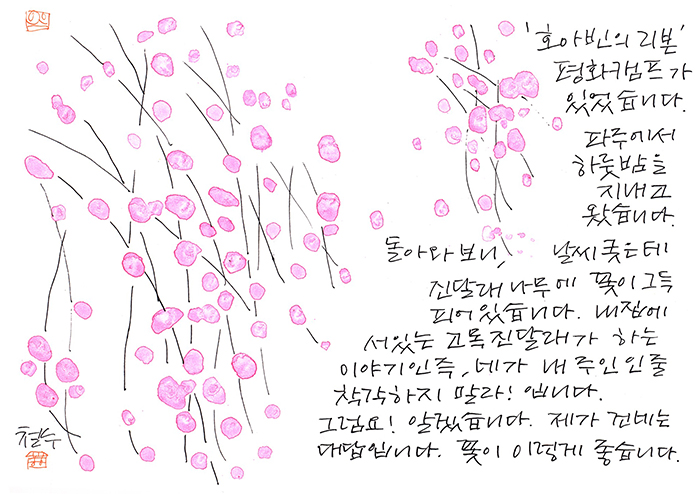 '호아빈의 리본'
평화캠프가
있었습니다.
파주에서
하룻밤을
지내고
왔습니다.
돌아와 보니, 날씨 궂은데
진달래 나무에 꽃이 그득
피어 있습니다. 내 집에
서있는 고목진달래가 하는
이야기인즉, 네가 내 주인인줄
착각하지 말라! 입니다.
그럼요! 알겠습니다. 제가 건네는
대답입니다. 꽃이 이렇게 좋습니다.
철수